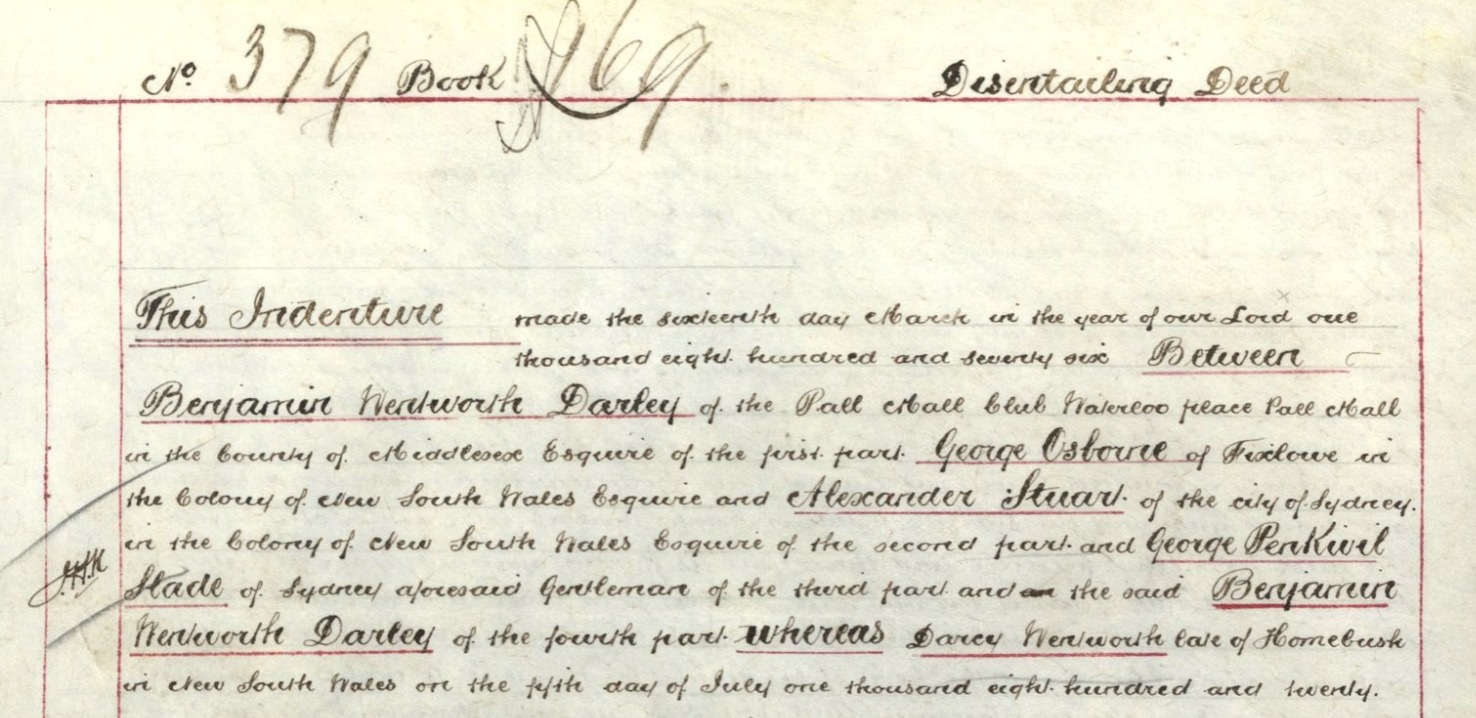 No 379 Book 169. Disentailing Deed
This Indenture made the sixteenth day March in the year of our Lord one
thousand eight hundred and seventy six Between
Benjamin Wentworth Darley of the Pall Mall Club Waterloo place Pall Mall
in the County of Middlesex Esquire of the first part George Osborne of Foxlowe in
the Colony of New South Wales Esquire and Alexander Stuart of the city of Sydney
in the Colony of New South Wales Esquire of the second part and George Penkivil
Slade of Sydney aforesaid Gentleman of the third part and the said Benjamin
Wentworth Darley of the fourth part whereas Darcy Wentworth late of Homebush
in New South Wales on the fifth day of July one thousand eight hundred and twenty